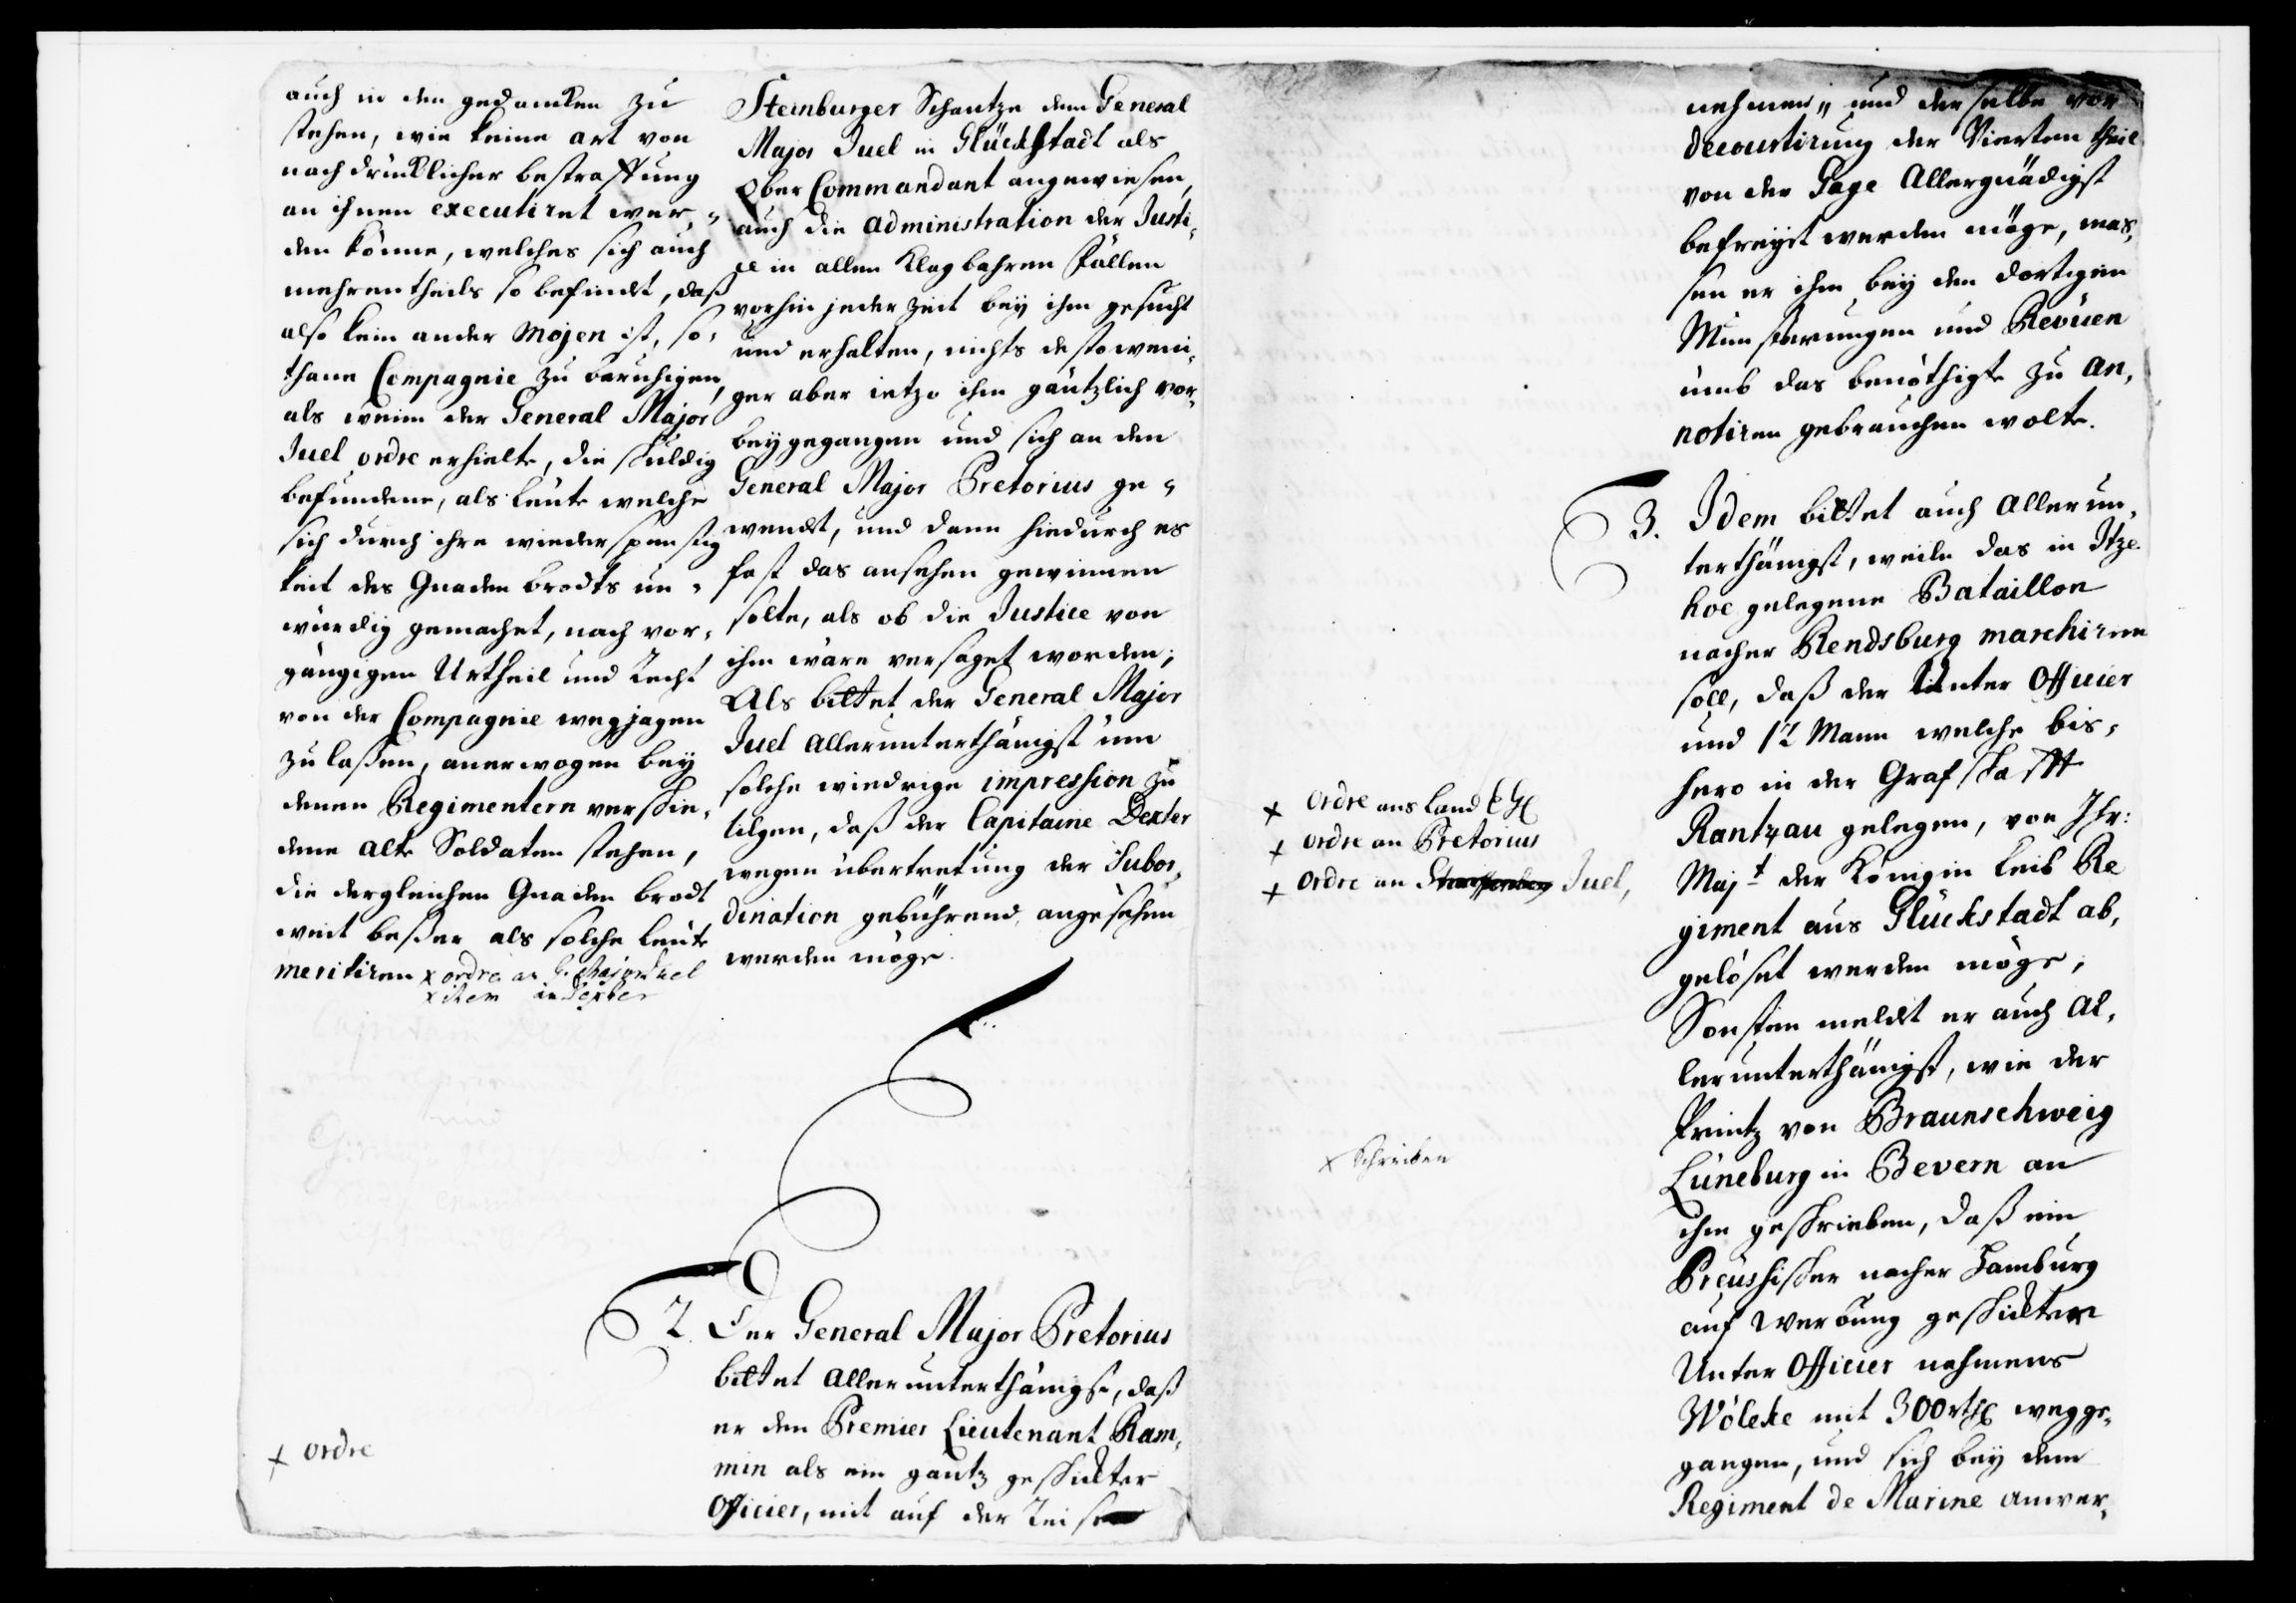 auch in den gedancken zu
stehen, wie keine art von
nachdrücklicher bestraffung
an ihnen executiret wer-
den könne, welches sich auch
mehrentheils so befindet, daß
also kein ander mojen ist, so-
thane Compagnie zu beruhigen,
als wenn der General Major
Juel ordre erhielte, die schuldig
befundene, als leute welche
sich durch ihre wiederspenstig
keit des Gnaden brodts un-
würdig gemachet, nach vor-
gängigen Urtheil und Recht
von der Compagnie wegjagen
zu laßen, anerwogen bey
denen Regimentern verschie-
dene alte Soldaten stehen,
die dergleichen Gnaden brodt
weit beßer als solche leute
meritiren x ordre an G. Major Juel
x item an Dexter
Steinburger Schantze dem General
Major Juel in Glückstadt als
Ober Commandant angewiesen,
auch die administration der Justi-
ce in allen Klagbahren Fällen
vorhin jederzeit bey ihm gesucht
und erhalten, nichts destoweni-
ger aber ietzo ihm gäntzlich vor-
beygegangen und sich an den
General Major Pretorius ge-
wendt, und dann hiedurch es
fast das ansehen gewinnen
solte, als ob die Justice von
ihm wäre versaget worden;
Als bittet der General Major
Juel allerunterthänigst üm
solche wiedrige impression zu
tilgen, daß der Capitaine Dexter
wegen übertretung der Subor-
dination gebührend angesehen
werden möge.
2. Der General Major Pretorius
bittet allerunterthänigst, daß
er den Premier Lieutenant Ram-
min als ein gantz geschickter
Officier, mit auf der Reise
x ordre
nehmen, und derselbe von
decourtirung der Vierten theil
von der Gage Allergnädigst
befreyet werden möge, mas-
sen er ihm bey den dortigen
Munsterungen und Revüen
umb das benöthigte zu an-
notiren gebrauchen wolte.
3. Idem bittet auch Allerun-
terthänigst, weiln das in Itze-
hoe gelegene Bataillon
nacher Rendsburg marchiren
soll, daß der Unter Officier
und 12 Mann welche bis-
hero in der Grafschafft
Rantzau gelegen, von Ihr:
Majt der Königin Leib Re
giment aus Glückstadt ab-
gelöset werden möge;
Sonsten meldet er auch al-
lerunterthänigst, wie der
Printz von Braunschweig
Lüneburg in Bevern an
ihm geschrieben, daß ein
Preussischer nacher Hamburg
auf Werbung geschickter
Unter Officier nahmens
Wöleke mit 300 rthl wegge-
gangen, und sich bey dem
Regiment de Marine anwer-
x ordre ans Land
x ordre an Pretorius
x ordre an Juel,
x Schreiben